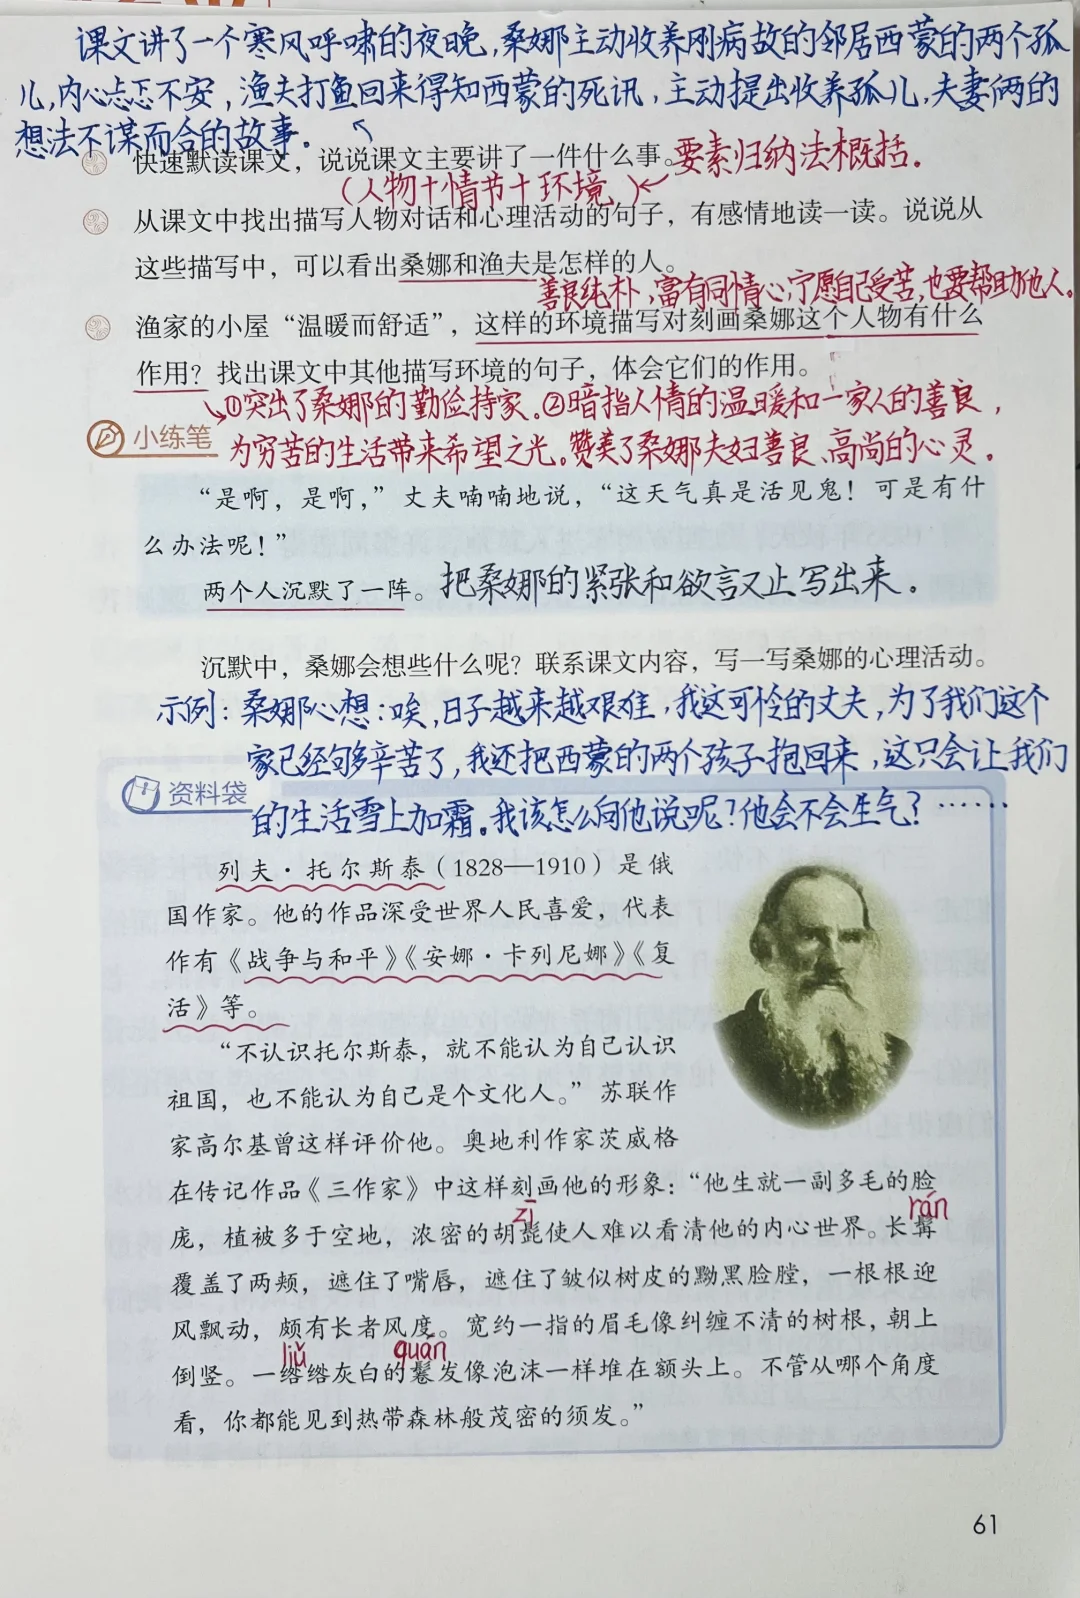 课文讲了一个寒风呼啸的夜晚,桑娜主动收养刚病故的邻居西蒙的两个孤
儿,内心忐忑不安,渔夫打鱼回来得知西蒙的死讯,主动提出收养孤儿,夫妻俩的
想法不谋而合的故事.
快速默读课文，说说课文主要讲了一件什么事。要素归纳法概括.
(人物+情节+环境)
从课文中找出描写人物对话和心理活动的句子，有感情地读一读。说说从
这些描写中，可以看出桑娜和渔夫是怎样的人。
善良纯朴,富有同情心,宁愿自己受苦,也要帮助他人。
渔家的小屋“温暖而舒适”，这样的环境描写对刻画桑娜这个人物有什么
作用？找出课文中其他描写环境的句子，体会它们的作用。
①突出了桑娜的勤俭持家.②暗指人情的温暖和一家人的善良,
小练笔
为穷苦的生活带来希望之光。赞美了桑娜夫妇善良、高尚的心灵.
“是啊，是啊，”丈夫喃喃地说，“这天气真是活见鬼！可是有什
么办法呢！”
两个人沉默了一阵。把桑娜的紧张和欲言又止写出来.
沉默中，桑娜会想些什么呢？联系课文内容，写一写桑娜的心理活动。
示例:桑娜心想:唉,日子越来越艰难,我这可怜的丈夫,为了我们这个
家已经够辛苦了,我还把西蒙的两个孩子抱回来,这只会让我们
资料袋
的生活雪上加霜。我该怎么向他说呢?他会不会生气?……
列夫·托尔斯泰（1828—1910）是俄
国作家。他的作品深受世界人民喜爱，代表
作有《战争与和平》《安娜·卡列尼娜》《复
活》等。
“不认识托尔斯泰，就不能认为自己认识
祖国，也不能认为自己是个文化人。”苏联作
家高尔基曾这样评价他。奥地利作家茨威格
在传记作品《三作家》中这样刻画他的形象：“他生就一副多毛的脸
zī rán
庞，植被多于空地，浓密的胡髭使人难以看清他的内心世界。长髯
覆盖了两颊，遮住了嘴唇，遮住了皱似树皮的黝黑脸膛，一根根迎
风飘动，颇有长者风度。宽约一指的眉毛像纠缠不清的树根，朝上
liǔ quán
倒竖。一绺绺灰白的鬈发像泡沫一样堆在额头上。不管从哪个角度
看，你都能见到热带森林般茂密的须发。”
61